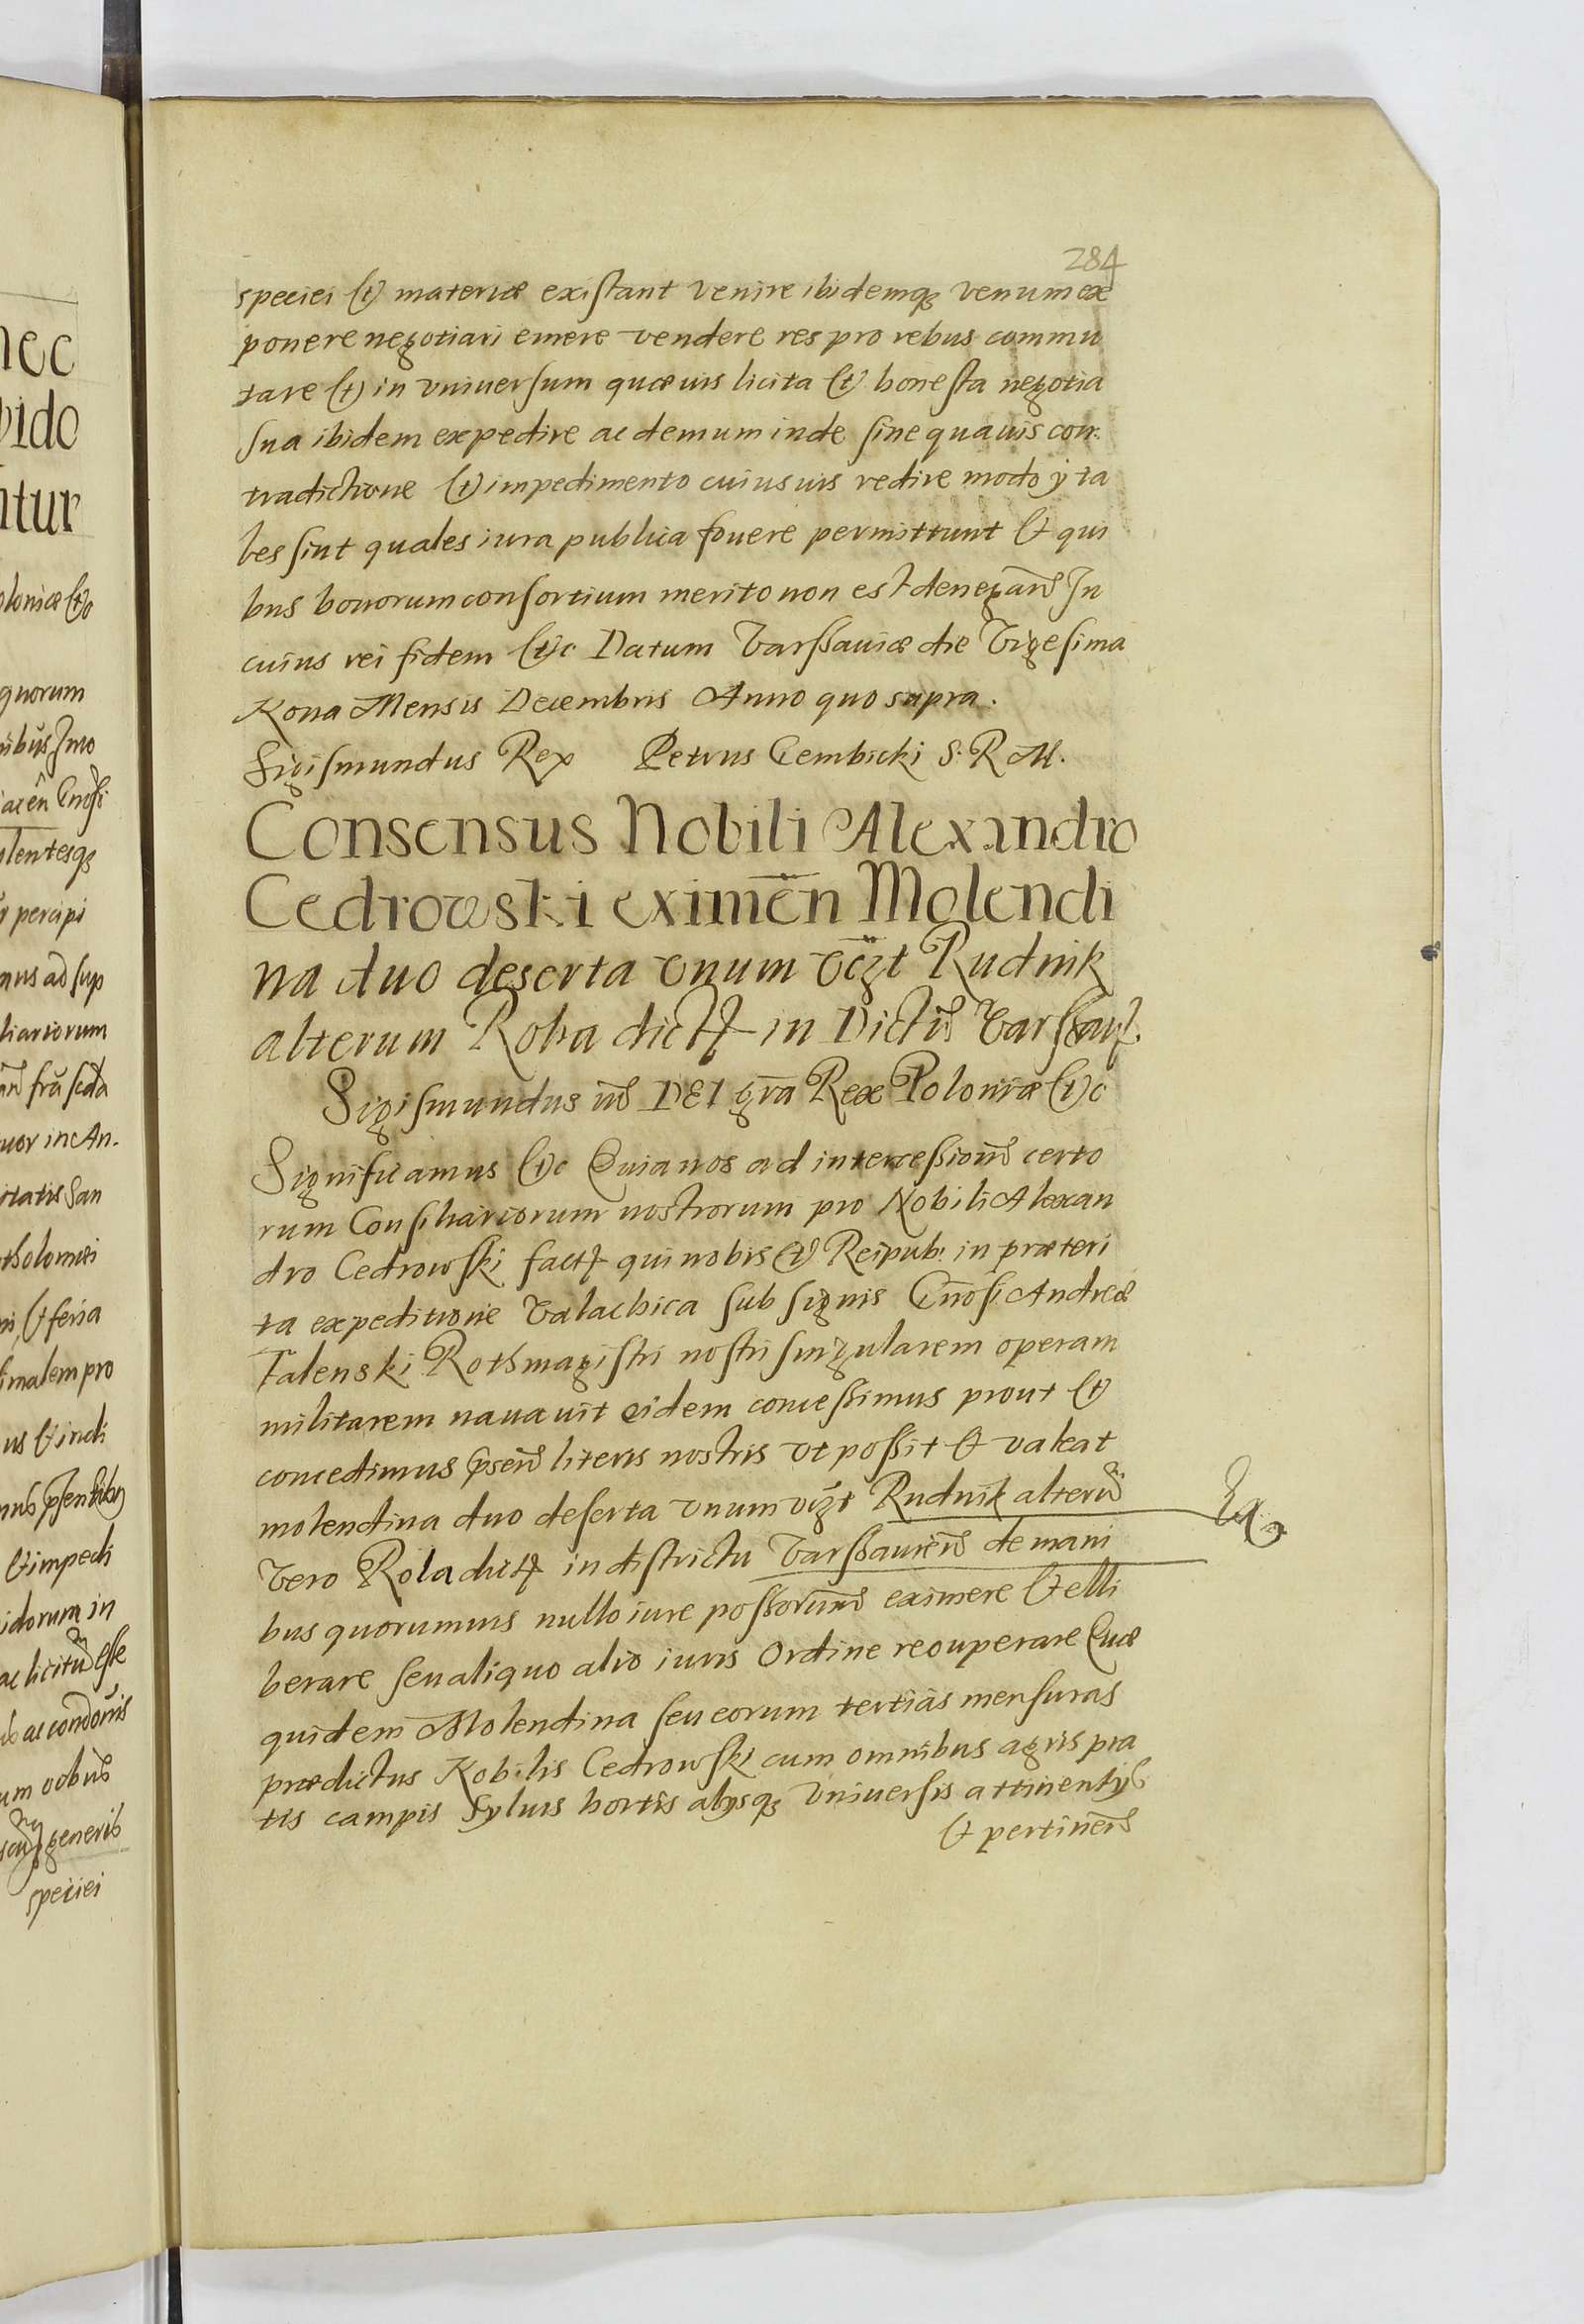 nec
vido
ntur
oloniæ &c
quorum
nibus Imo
iaren̄ Gn̄osi
olentesq₃
percipi
mus ad sup
liariorum
fra scta
uor in An-
itatis San
tholomei
ni, & feria
simalem pro
us & indi
mus p̄sentibus
& impedi
idorum in
ac licitū esse
ac condonis
um vobus
generis
speciei
284
speciei & materiæ existant venire ibidemq₃ venum ex
ponere negotiari emere vendere res pro rebus commu
tare & in vniuersum quæuis licita & honesta negotia
sua ibidem expedire ac demum inde sine quauis con:
tradictione & impedimento cuiusuis redire modo ÿ ta
les sint quales iura publica fouere permittunt & qui
bus bonorum consortium merito non est denegand In
cuius rei fidem &c Datum Varssauiæ die Vigesima
Nona Mensis Decembris Anno quo supra.
Sigismundus Rex Petrus Gembicki S: R M.
Consensus Nobili Alexandro
Cedrowski eximen̄ Molendi
na duo deserta vnum vēzt Rudnik
alterum Rola dict in Dictū Varssau.
Sigismundus iij DEI gr̄a Rex Poloniæ &c
Significamus &c Quia nos ad intercessionē certo
rum Consiliariorum nostrorum pro Nobili Alexan
dro Cedrowski fact qui nobis & Reipub: in præteri
ta expeditione Valachica sub signis Gn̄osi Andreæ
Falenski Rothmagistri nostri singularem operam
militarem nauauit eidem concessimus prout &
concedimus p̄sen̄ literis nostris vt possit & valeat
molendina duo deserta vnum vizt Rudnik alterū
Vero Rola dict in districtu Varssauien̄ de mani
Ex
bus quorumuis nullo iure possorum̄ eximere & elli
berare seu aliquo alio iuris Ordine recuperare Quæ
quidem Molendina seu eorum tertias mensuras
prædictus Nobilis Cedrowski cum omnibus agris pra
tis campis syluis hortis alysq₃ vniuersis attinentijs
& pertinen̄